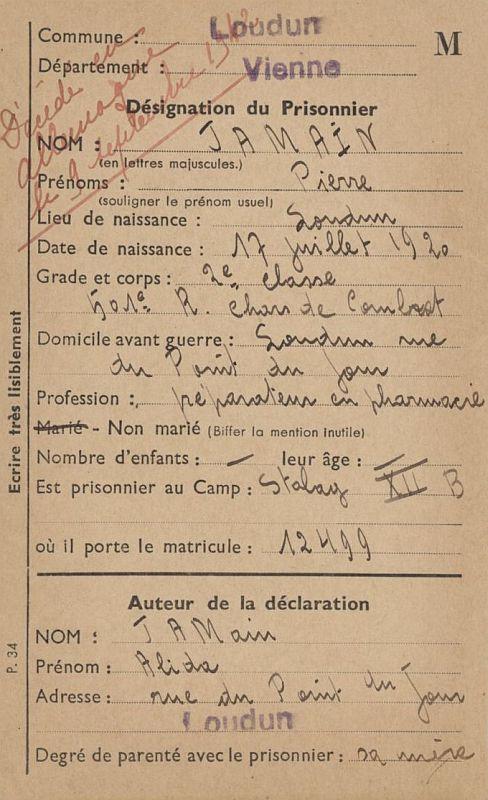 Commune : Loudun
M
Département : Vienne
Décédé en
Allemagne
le 9 septembre 1942
Désignation du Prisonnier
NOM : JAMAIN
(en lettres majuscules.)
Prénoms : Pierre
(souligner le prénom usuel)
Lieu de naissance : Loudun
Date de naissance : 17 juillet 1920
Grade et corps : 2e classe
501e R. Chars de Combat
Domicile avant guerre : Loudun rue
du Point du Jour
Profession : préparateur en pharmacie
Marié - Non marié (Biffer la mention inutile)
Nombre d'enfants : — leur âge : —
Est prisonnier au Camp : Stalag XII B
où il porte le matricule : 12499
Auteur de la déclaration
NOM : JAMain
Prénom : Alida
Adresse : rue du Point du Jour
Loudun
Degré de parenté avec le prisonnier : sa mère
Ecrire très lisiblement
P. 34